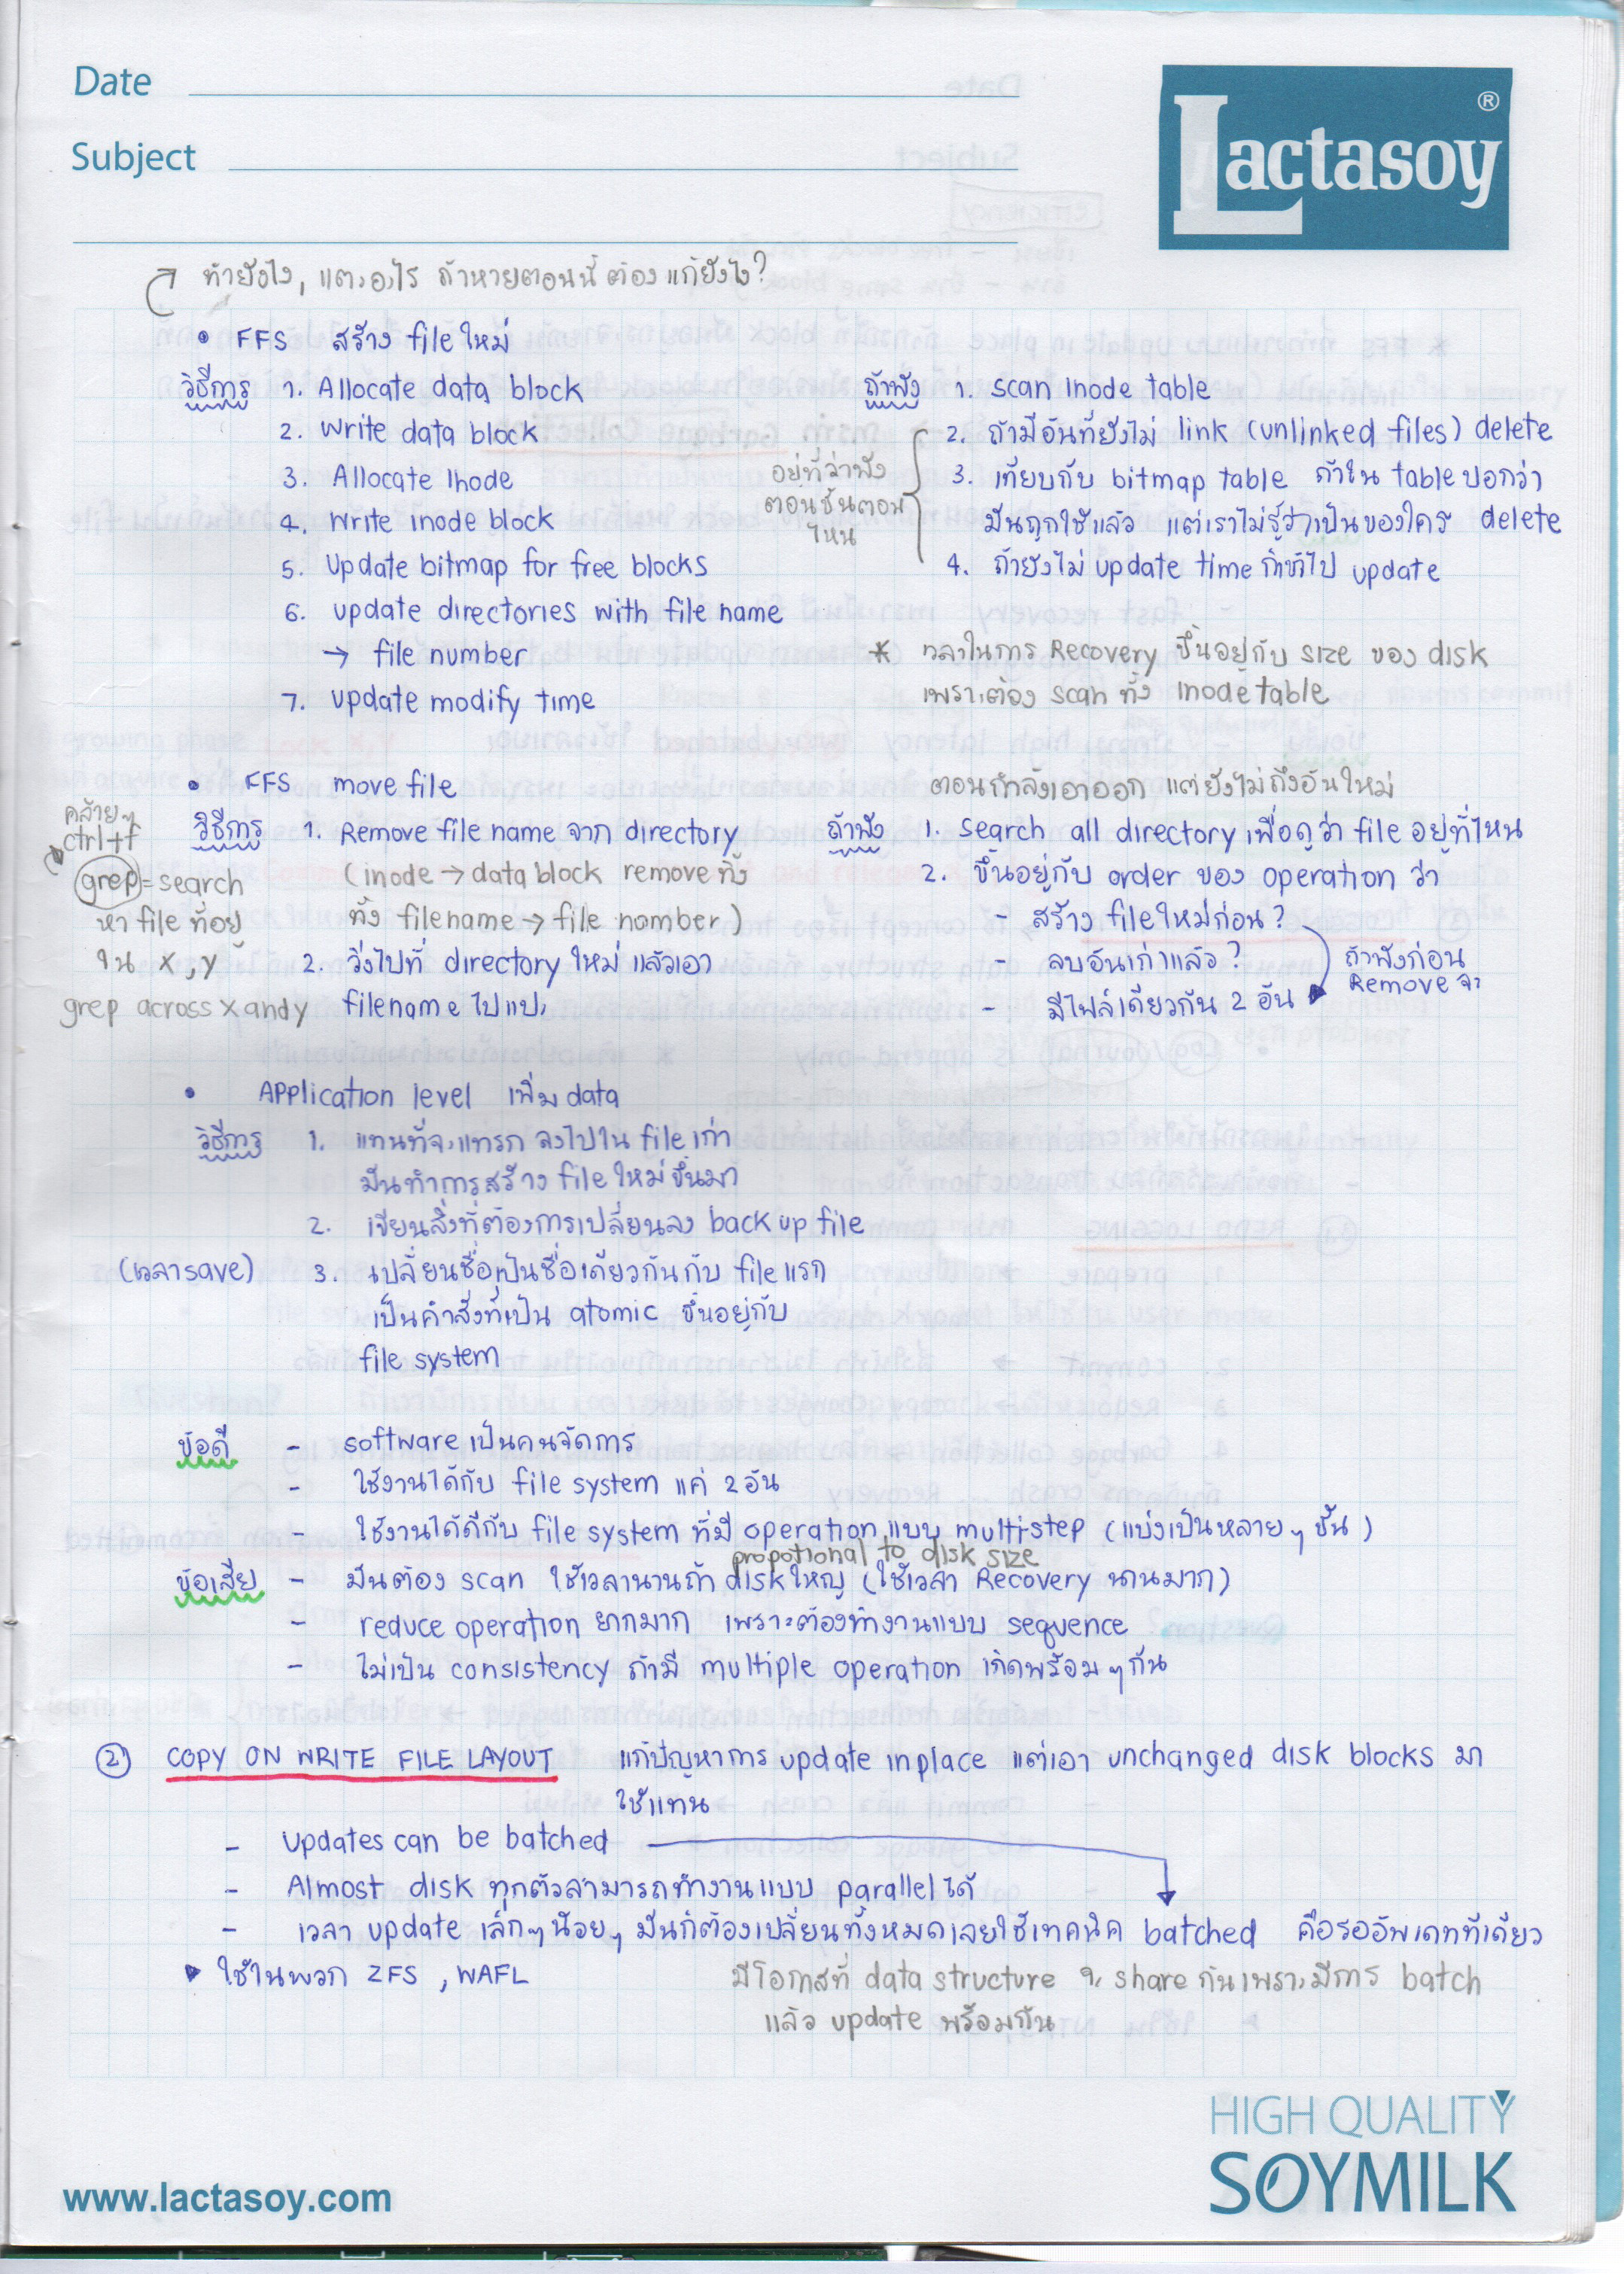 Date
Subject
Lactasoy ®
ทำยังไง, แตะอะไร ถ้าหายตอนนี้ต้องแก้ยังไง?
• FFS สร้าง file ใหม่
วิธีการ 1. Allocate data block
2. Write data block
3. Allocate Inode
4. Write inode block
5. Update bitmap for free blocks
6. update directories with file name
→ file number
7. update modify time
ถ้าพัง 1. scan Inode table
2. ถ้ามีอันที่ยังไม่ link (unlinked files) delete
3. เทียบกับ bitmap table ถ้าใน table บอกว่า
มันถูกใช้แล้ว แต่เราไม่รู้ว่าเป็นของใคร delete
4. ถ้ายังไม่ update time ก็เข้าไป update
อยู่ที่ว่าพัง
ตอนขั้นตอน
ไหน
* เวลาในการ Recovery ขึ้นอยู่กับ size ของ disk
เพราะต้อง scan ทั้ง Inode table
• FFS move file
วิธีการ 1. Remove file name จาก directory
(inode → data block remove ทิ้ง
ทั้ง filename → file number)
2. วิ่งไปที่ directory ใหม่ แล้วเอา
filename ไปแปะ
คล้ายๆ
ctrl+f
grep = search
หา file ที่อยู่
ใน x, y
grep across x and y
ตอนกำลังเอาออก แต่ยังไม่ถึงอันใหม่
ถ้าพัง 1. search all directory เพื่อดูว่า file อยู่ที่ไหน
2. ขึ้นอยู่กับ order ของ operation ว่า
- สร้าง file ใหม่ก่อน?
- ลบอันเก่าแล้ว?
- มีไฟล์เดียวกัน 2 อัน
ถ้าพังก่อน
Remove จะ
• Application level เพิ่ม data
วิธีการ 1. แทนที่จะแทรก ลงไปใน file เก่า
มันทำการสร้าง file ใหม่ขึ้นมา
2. เขียนสิ่งที่ต้องการเปลี่ยนลง back up file
(เวลา save) 3. เปลี่ยนชื่อเป็นชื่อเดียวกันกับ file แรก
เป็นคำสั่งที่เป็น atomic ขึ้นอยู่กับ
file system
ข้อดี - software เป็นคนจัดการ
- ใช้งานได้กับ file system แค่ 2 อัน
- ใช้งานได้ดีกับ file system ที่มี operation แบบ multi-step (แบ่งเป็นหลายๆ ขั้น)
propotional to disk size
ข้อเสีย - มันต้อง scan ใช้เวลานานถ้า disk ใหญ่ (ใช้เวลา Recovery นานมาก)
- reduce operation ยากมาก เพราะต้องทำงานแบบ sequence
- ไม่เป็น consistency ถ้ามี multiple operation เกิดพร้อมๆ กัน
② COPY ON WRITE FILE LAYOUT แก้ปัญหาการ update inplace แต่เอา unchanged disk blocks มา
ใช้แทน
- Updates can be batched
- Almost disk ทุกตัวสามารถทำงานแบบ parallel ได้
- เวลา update เล็กๆ น้อยๆ มันก็ต้องเปลี่ยนทั้งหมดเลยใช้เทคนิค batched คือรออัพเดททีเดียว
▶ ใช้ในพวก ZFS, WAFL
มีโอกาสที่ data structure จะ share กันเพราะมีการ batch
แล้ว update พร้อมกัน
HIGH QUALITY
SOYMILK
www.lactasoy.com